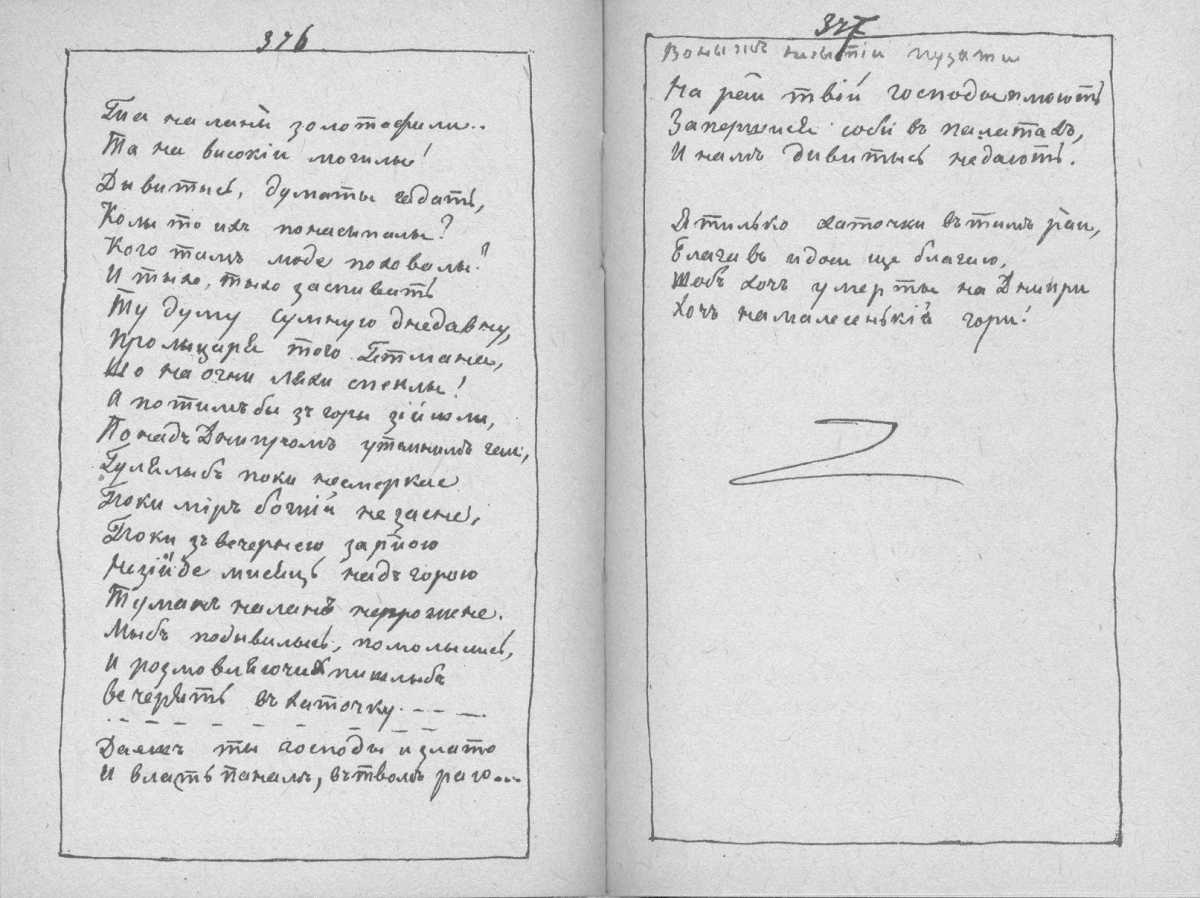 376
Та на ланы золотополи..
Та на високіи могилы!
Дывитысь, думаты гадать,
Колы то ихъ понасыпалы?
Кого тамъ люде поховалы?
И тыхо, тыхо заспивать
Ту думу сумную днедавну,
Про лыцаря того Гетмана,
Що на огни ляхи спеклы!
А потимъ бы зъ горы зійшли,
Понадъ Днипромъ утемнимъ гаи,
Гулялыбъ поки несмеркае
Поки міръ божій незасне,
Поки зъ вечернею зарйою
Незійде мисяць надъ горою
Туманъ наланъ непрожене.
Мыбъ подывились, помолылись,
И розмовляючи пишлыбъ
Вечерять въ хаточку. - - —
Даешъ ты господы и злато
И власть панамъ, въ твоимъ раю...
377
Воны жъ пузати
На рай твій господы плюють
Запершися собі въ палатахъ,
И намъ дивитысь недають.
Я тилько хаточки въ тимъ раи,
Благавъ и доси ще благаю,
Щобъ хочъ умерты на Днипри
Хочъ намалесенькій гори!